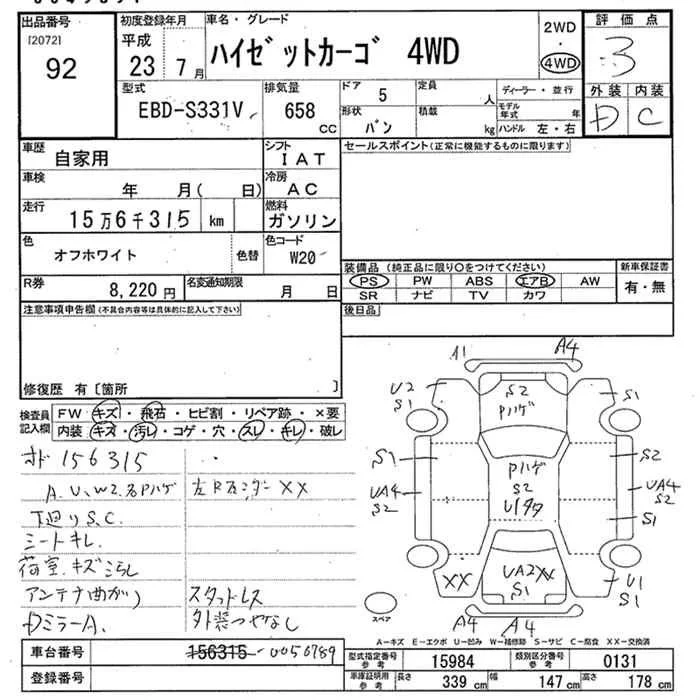 出品番号
[2072]
92
初度登録年月
平成
23年 7月
車名・グレード
ハイゼットカーゴ 4WD
2WD
・
4WD
評価点
3
外装 内装
D C
型式
EBD-S331V
排気量
658 CC
ドア 5
形状 バン
定員 人
積載 kg
ディーラー・並行
モデル年式 年
ハンドル 左・右
車歴
自家用
シフト
IAT
車検
年 月( 日)
冷房
AC
走行
15万6千315 km
燃料
ガソリン
色
オフホワイト
色替
色コード
W20
R券
8,220円
名変通知期限
月 日
セールスポイント(正常に機能するものに限ります)
装備品 (純正品に限り○をつけてください)
PS PW ABS エアB AW
SR ナビ TV カワ
新車保証書
有・無
後日品
注意事項申告欄(不具合内容等は具体的に記入して下さい)
修復歴 有〔箇所 〕
検査員
記入欄
FW キズ・飛石・ヒビ割・リペア跡・×要
内装 キズ・汚レ・コゲ・穴・スレ・キレ・破レ
オド 156315
A.U.W2.多Pハゲ
下廻りS.C.
シートキレ.
荷室.キズ汚レ
アンテナ曲がり
Dミラー A.
XX
スタッドレス
外装つやなし
A1 A4
U2
S1
S2
Pハゲ
S1
S1
S2
UA4
S2
Pハゲ
S2
UA4
S2
S1
XX
UA2XX
S1
U1
S1
A4 A4
スペア
A-キズ E-エクボ U-凹み W-補修跡 S-サビ C-腐食 XX-交換済
車台番号
156315 0056789
登録番号
型式指定番号
参考
15984
類別区分番号
参考
0131
車庫証明用
参考
長さ 339 cm
幅 147 cm
高さ 178 cm